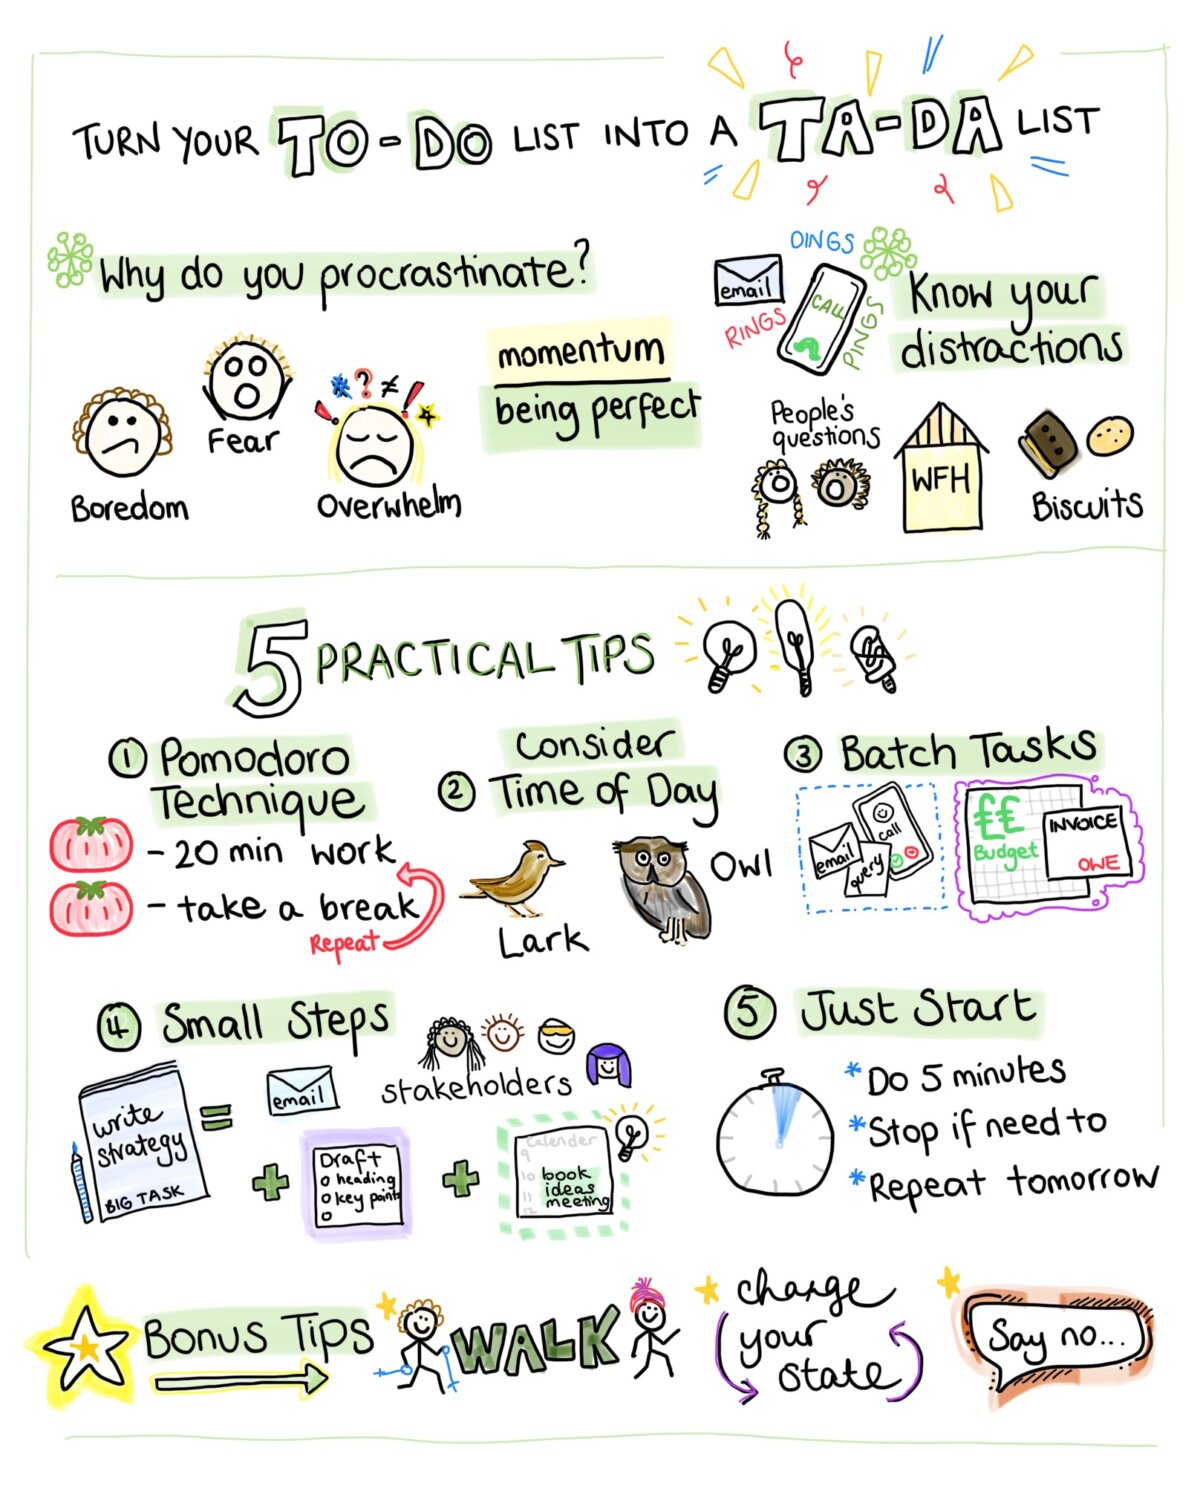 TURN YOUR TO-DO LIST INTO A TA-DA LIST
Why do you procrastinate?
Boredom
Fear
Overwhelm
momentum
being perfect
DINGS
email
RINGS
CALL
PINGS
Know your
distractions
People's
questions
WFH
Biscuits
5 PRACTICAL TIPS
1 Pomodoro
Technique
- 20 min work
- take a break
Repeat
2 Consider
Time of Day
Lark
Owl
3 Batch Tasks
email
query
call
££
Budget
INVOICE
OWE
4 Small Steps
write
strategy
BIG TASK
=
email
stakeholders
+
Draft
o heading
o key points
o
+
Calender
9
10 book
11 ideas
12 meeting
5 Just Start
* Do 5 minutes
* Stop if need to
* Repeat tomorrow
Bonus Tips
WALK
change
your
state
Say no...